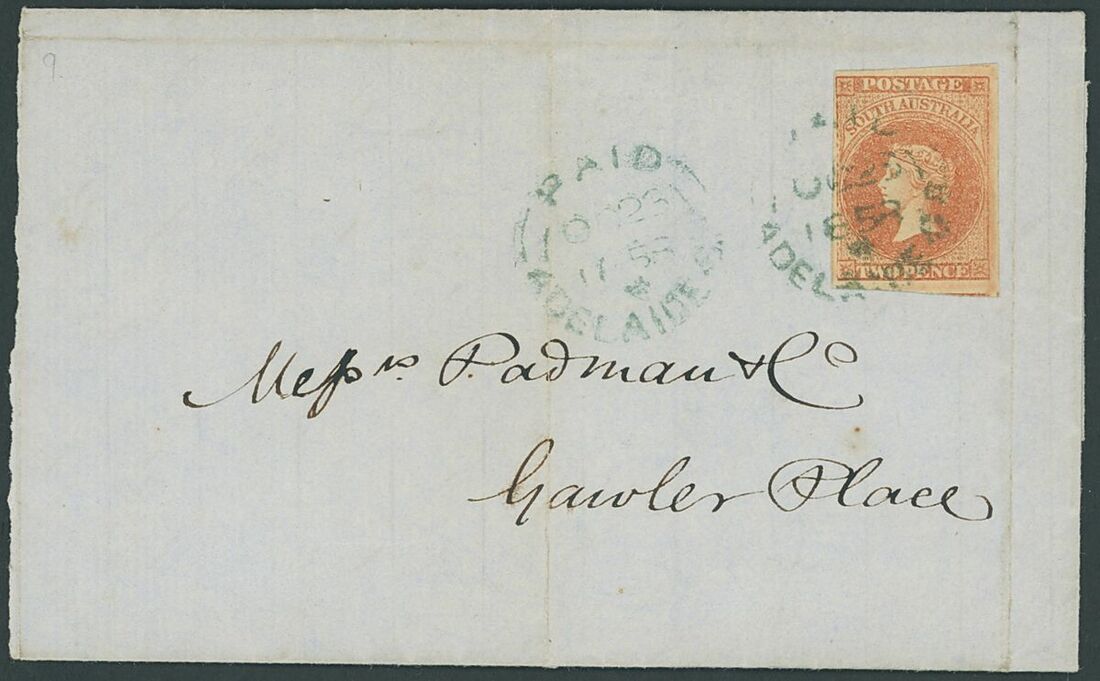 9
POSTAGE
SOUTH AUSTRALIA
TWO PENCE
PAID
ADELAIDE
ADELAIDE
Messrs. Padman & Co
Gawler Place